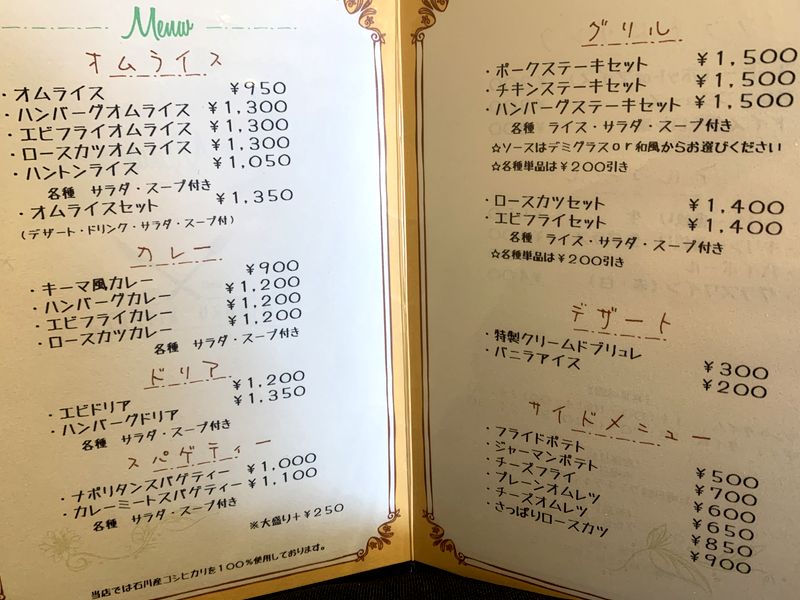 Menu
オムライス
・オムライス ¥950
・ハンバーグオムライス ¥1,300
・エビフライオムライス ¥1,300
・ロースカツオムライス ¥1,300
・ハントンライス ¥1,050
各種 サラダ・スープ付き
・オムライスセット ¥1,350
(デザート・ドリンク・サラダ・スープ付)
カレー
・キーマ風カレー ¥900
・ハンバーグカレー ¥1,200
・エビフライカレー ¥1,200
・ロースカツカレー ¥1,200
各種 サラダ・スープ付き
ドリア
・エビドリア ¥1,200
・ハンバーグドリア ¥1,350
各種 サラダ・スープ付き
スパゲティー
・ナポリタンスパゲティー ¥1,000
・カレーミートスパゲティー ¥1,100
各種 サラダ・スープ付き
※大盛り+¥250
当店では石川産コシヒカリを100%使用しております。
グリル
・ポークステーキセット ¥1,500
・チキンステーキセット ¥1,500
・ハンバーグステーキセット ¥1,500
各種 ライス・サラダ・スープ付き
☆ソースはデミグラスor和風からお選びください
☆各種単品は¥200引き
・ロースカツセット ¥1,400
・エビフライセット ¥1,400
各種 ライス・サラダ・スープ付き
☆各種単品は¥200引き
デザート
・特製クリームドブリュレ ¥300
・バニラアイス ¥200
サイドメニュー
・フライドポテト ¥500
・ジャーマンポテト ¥700
・チーズフライ ¥600
・プレーンオムレツ ¥650
・チーズオムレツ ¥850
・さっぱりロースカツ ¥900